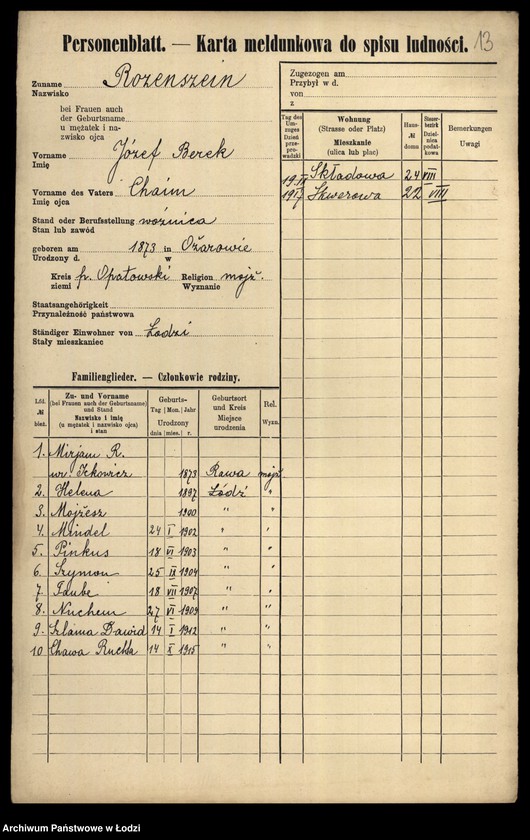 Personenblatt. — Karta meldunkowa do spisu ludności. 13
Zuname Rozenszein
Nazwisko
bei Frauen auch
der Geburtsname
u mężatek i na-
zwisko ojca
Vorname Józef Berek
Imię
Vorname des Vaters Chaim
Imię ojca
Stand oder Berufsstellung woźnica
Stan lub zawód
geboren am 1873 in Ożarowie
Urodzony d. w
Kreis p. Opatowski Religion mojż.
ziemi Wyznanie
Staatsangehörigkeit
Przynależność państwowa
Ständiger Einwohner von Łodzi
Stały mieszkaniec
Zugezogen am
Przybył w d.
von
z
Tag des Umzuges Dzień przeprowadzki
Wohnung
(Strasse oder Platz)
Mieszkanie
(ulica lub plac)
Haus-
№
domu
Steuerbezirk Dzielnica podatkowa
Bemerkungen
Uwagi
Składowa 24 VIII
Skwerowa 22 VIII
Familienglieder. — Członkowie rodziny.
Lfd.
№
bież.
Zu- und Vorname
(bei Frauen auch der Geburtsname)
und Stand
Nazwisko i imię
(u mężatek i nazwisko ojca)
i stan
Geburts-
Tag Mon. Jahr
Urodzony
dnia mies. r.
Geburtsort
und Kreis
Miejsce
urodzenia
Rel.
Wyzn.
1. Mirjam R.
wr. Ickowicz 1873 Rawa mojż
2. Helena 1897 Łódź "
3. Mojżesz 1900 " "
4. Mindel 24 I 1902 " "
5. Pinkus 18 VI 1903 " "
6. Szymon 25 IX 1904 " "
7. Tauba 18 VII 1907 " "
8. Nuchem 27 VI 1909 " "
9. Szlama Dawid 14 I 1912 " "
10 Chawa Ruchla 14 X 1915 " "
Archiwum Państwowe w Łodzi